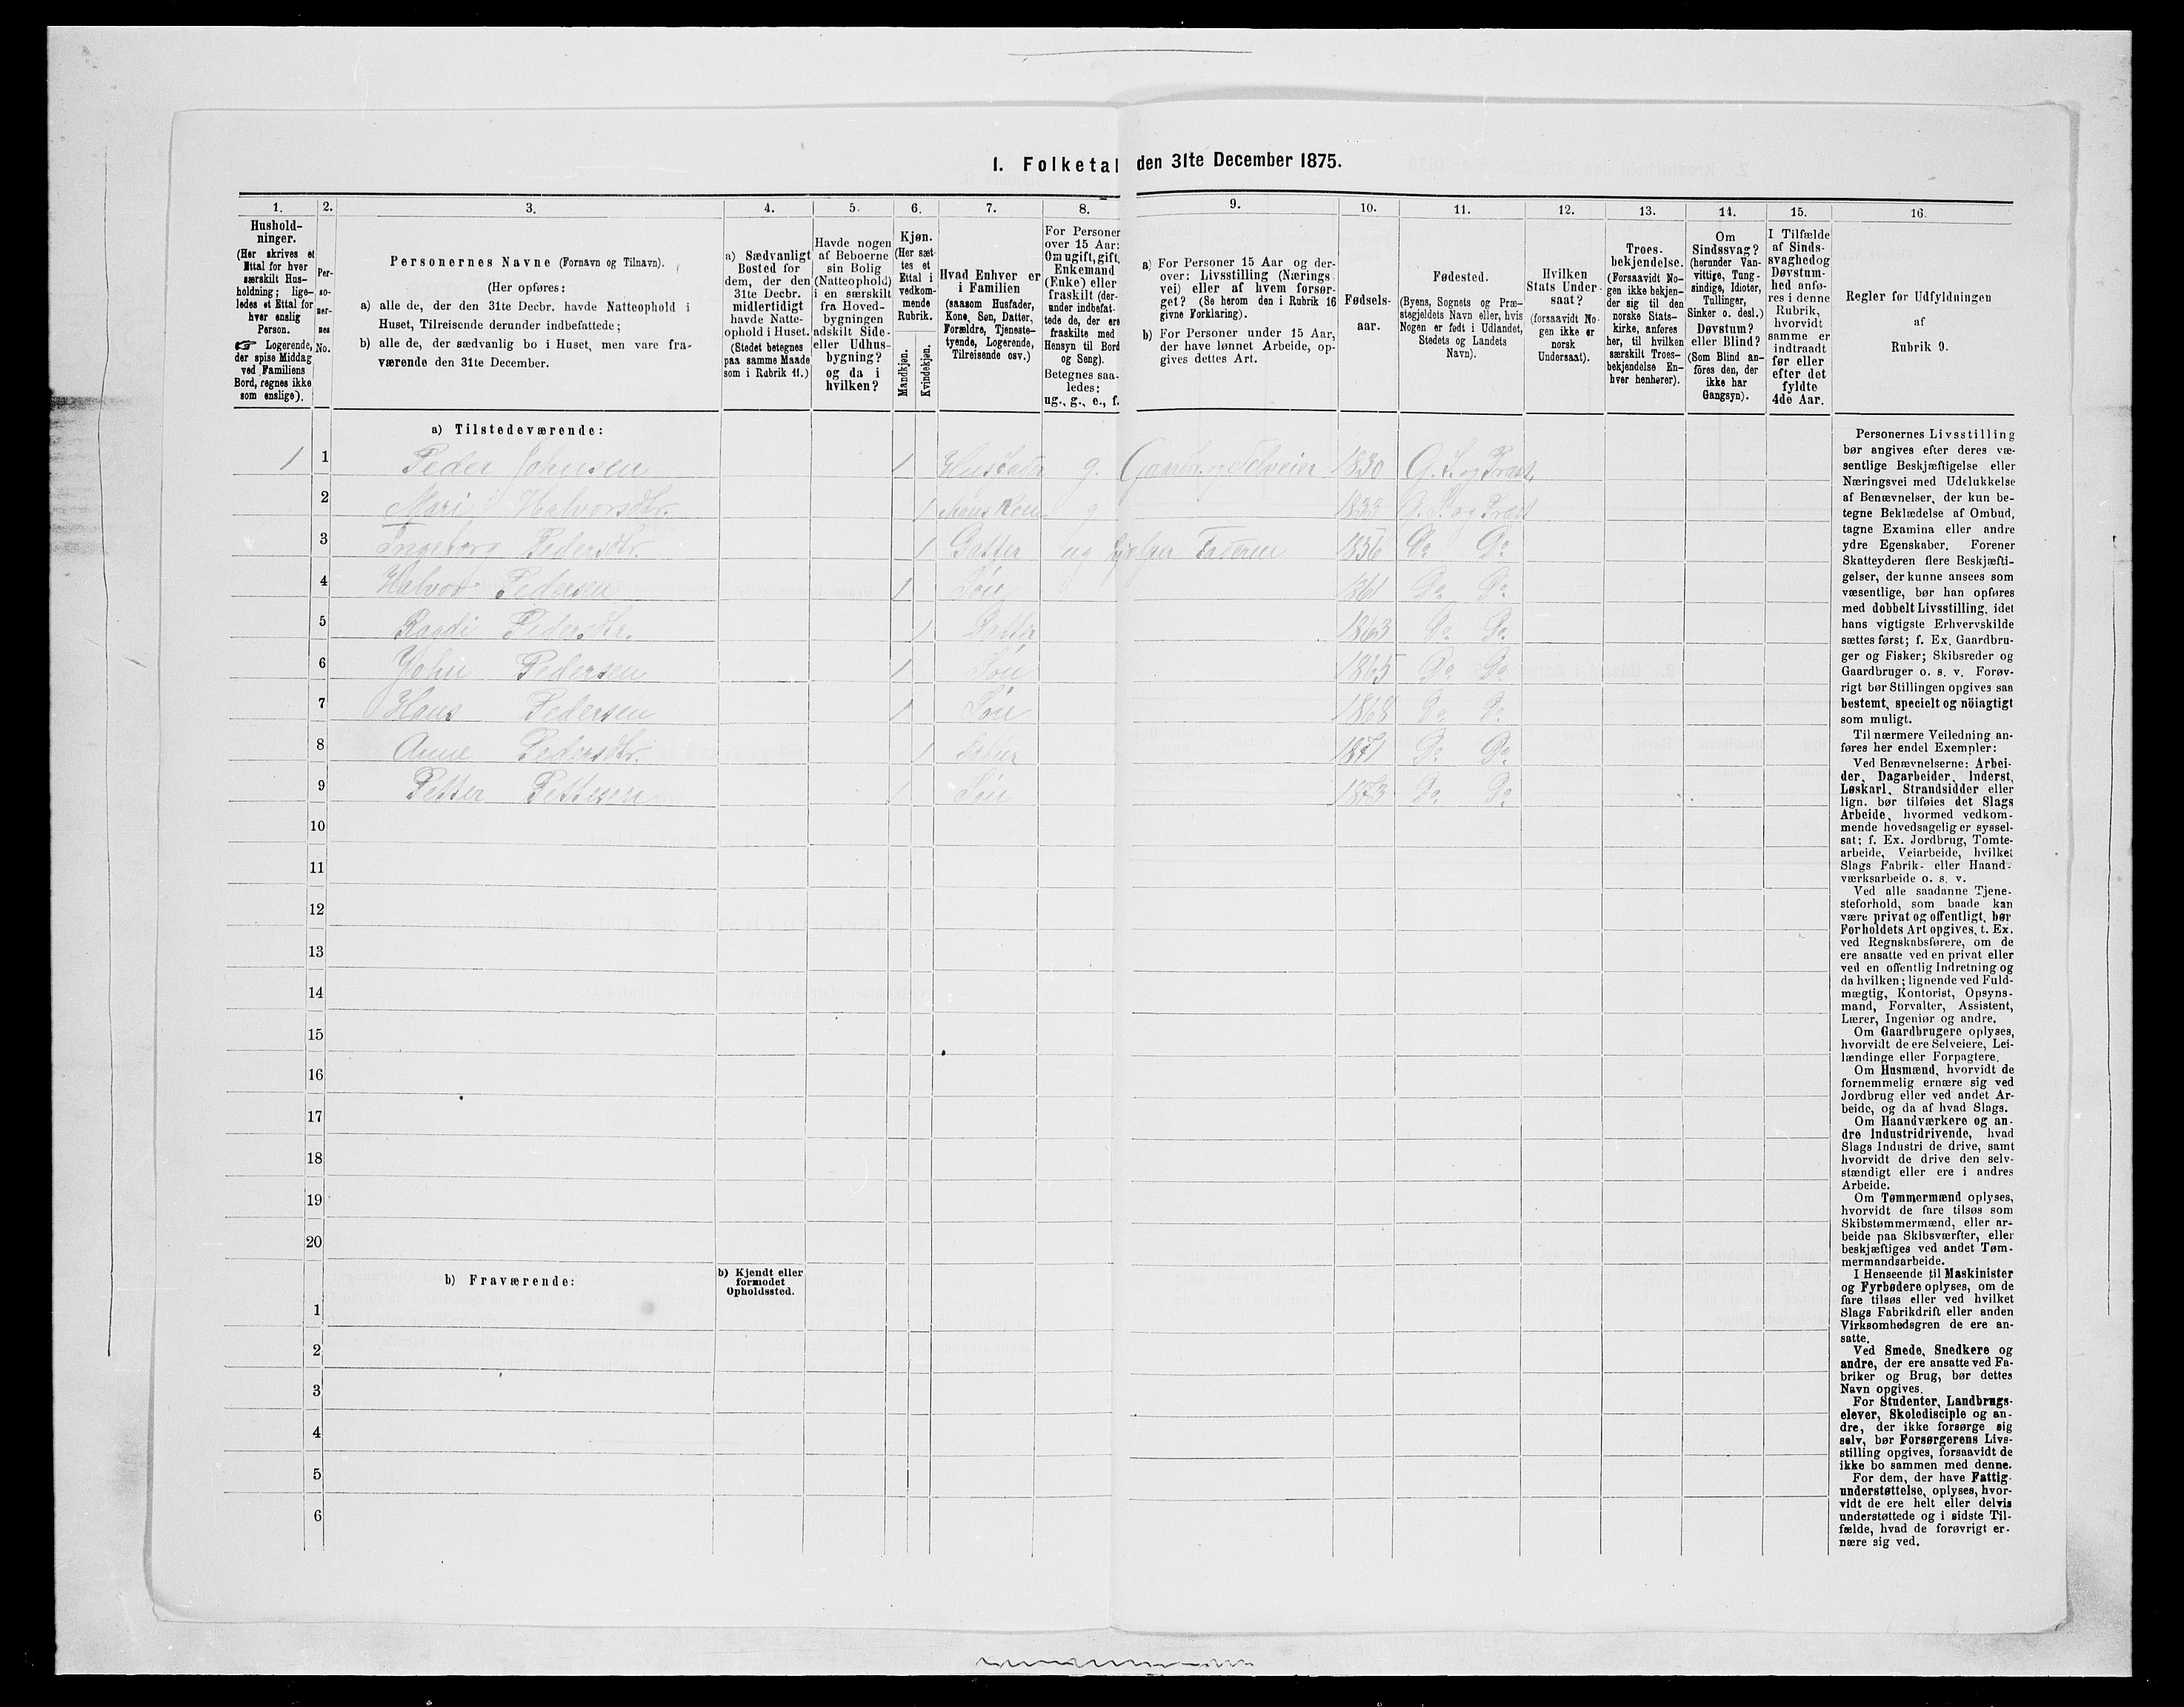 1. Folketal den 31te December 1875.
1.
Hushold-
ninger.
(Her skrives et
Ettal for hver
særskilt Hus-
holdning; lige-
ledes et Ettal for
hver enslig
Person.
☞ Logerende,
der spise Middag
ved Familiens
Bord, regnes ikke
som enslige).
2.
Per-
so-
ner-
nes
No.
3.
Personernes Navne (Fornavn og Tilnavn).
(Her opføres:
a) alle de, der den 31te Decbr. havde Natteophold i
Huset, Tilreisende derunder indbefattede;
b) alle de, der sædvanlig bo i Huset, men vare fra-
værende den 31te December.
4.
a) Sædvanligt
Bosted for
dem, der den
31te Decbr.
midlertidigt
havde Natte-
ophold i Huset.
(Stedet betegnes
paa samme Maade
som i Rubrik 11.)
5.
Havde nogen
af Beboerne
sin Bolig
(Natteophold)
i en særskilt
fra Hoved-
bygningen
adskilt Side-
eller Udhus-
bygning?
og da i
hvilken?
6.
Kjøn.
(Her sæt-
tes et
Ettal i
vedkom-
mende
Rubrik.
Mandkjøn.
Kvindekjøn.
7.
Hvad Enhver er
i Familien
(saasom Husfader,
Kone, Søn, Datter,
Forældre, Tjeneste-
tyende, Logerende,
Tilreisende osv.)
8.
For Personer
over 15 Aar:
Om ugift, gift,
Enkemand
(Enke) eller
fraskilt (der-
under indbefat-
tede de, der ere
fraskilte med
Hensyn til Bord
og Seng).
Betegnes saa-
ledes:
ug., g., e., f.
9.
a) For Personer 15 Aar og der-
over: Livsstilling (Nærings-
vei) eller af hvem forsør-
get? (Se herom den i Rubrik 16
givne Forklaring).
b) For Personer under 15 Aar,
der have lønnet Arbeide, op-
gives dettes Art.
10.
Fødsels-
aar.
11.
Fødested.
(Byens, Sognets og Præ-
stegjeldets Navn eller, hvis
Nogen er født i Udlandet,
Stedets og Landets
Navn).
12.
Hvilken
Stats Under-
saat?
(forsaavidt No-
gen ikke er
norsk
Undersaat).
13.
Troes-
bekjendelse.
(Forsaavidt No-
gen ikke bekjen-
der sig til den
norske Stats-
kirke, anføres
her, til hvilken
særskilt Troes-
bekjendelse En-
hver henhører).
14.
Om
Sindssvag?
(herunder Van-
vittige, Tung-
sindige, Idioter,
Tullinger,
Sinker o. desl.)
Døvstum?
eller Blind?
(Som Blind an-
føres den, der
ikke har
Gangsyn).
15.
I Tilfælde
af Sinds-
svaghed og
Døvstum-
hed anfø-
res i denne
Rubrik,
hvorvidt
samme er
indtraadt
før eller
efter det
fyldte
4de Aar.
16.
Regler for Udfyldningen
af
Rubrik 9.
a) Tilstedeværende:
1 1 Peder Johnsen 1 Husfader g. Gaardbr. og Selveier 1830 G. S. og Præst.
2 Mari Halvorsdtr. 1 Hans Kone g 1833 G. S. og Præst
3 Ingeborg Pedersdtr. 1 Datter ug hjelper Faderen 1856 Do Do
4 Halvor Pedersen 1 Søn 1861 Do Do
5 Ragdi Pedersdtr. 1 Datter 1863 Do Do
6 John Pedersen 1 Søn 1865 Do Do
7 Hans Pedersen 1 Søn 1868 Do Do
8 Anne Pedersdtr. 1 Datter 1871 Do Do
9 Petter Pettesen 1 Søn 1873 Do Do
10
11
12
13
14
15
16
17
18
19
20
b) Fraværende:
b) Kjendt eller
formodet
Opholdssted.
1
2
3
4
5
6
Personernes Livsstilling
bør angives efter deres væ-
sentlige Beskjæftigelse eller
Næringsvei med Udelukkelse
af Benævnelser, der kun be-
tegne Beklædelse af Ombud,
tagne Examina eller andre
ydre Egenskaber. Forener
Skatteyderen flere Beskjæfti-
gelser, der kunne ansees som
væsentlige, bør han opføres
med dobbelt Livsstilling, idet
hans vigtigste Erhvervskilde
sættes først; f. Ex. Gaardbru-
ger og Fisker; Skibsreder og
Gaardbruger o. s. v. Forøv-
rigt bør Stillingen opgives saa
bestemt, specielt og nöiagtigt
som muligt.
Til nærmere Veiledning an-
føres her endel Exempler:
Ved Benævnelserne: Arbei-
der, Dagarbeider, Inderst,
Løskarl, Strandsidder eller
lign. bør tilføies det Slags
Arbeide, hvormed vedkom-
mende hovedsagelig er syssel-
sat; f. Ex. Jordbrug, Tomte-
arbeide, Veiarbeide, hvilket
Slags Fabrik- eller Haand-
værksarbeide o. s. v.
Ved alle saadanne Tjene-
steforhold, som baade kan
være privat og offentligt, bør
Forholdets Art opgives, t. Ex.
ved Regnskabsførere, om de
ere ansatte ved en privat eller
ved en offentlig Indretning og
da hvilken; lignende ved Fuld-
mægtig, Kontorist, Opsyns-
mand, Forvalter, Assistent,
Lærer, Ingeniør og andre.
Om Gaardbrugere oplyses,
hvorvidt de ere Selveiere, Lei-
lændinge eller Forpagtere.
Om Husmænd, hvorvidt de
fornemmelig ernære sig ved
Jordbrug eller ved andet Ar-
beide, og da af hvad Slags.
Om Haandværkere og an-
dre Industridrivende, hvad
Slags Industri de drive, samt
hvorvidt de drive den selv-
stændigt eller ere i andres
Arbeide.
Om Tømmermænd oplyses,
hvorvidt de fare tilsøs som
Skibstømmermænd, eller ar-
beide paa Skibsværfter, eller
beskjæftiges ved andet Tøm-
mermandsarbeide.
I Henseende til Maskinister
og Fyrbødere oplyses, om de
fare tilsøs eller ved hvilket
Slags Fabrikdrift eller anden
Virksomhedsgren de ere an-
satte.
Ved Smede, Snedkere og
andre, der ere ansatte ved Fa-
briker og Brug, bør dettes
Navn opgives.
For Studenter, Landbrugs-
elever, Skoledisciple og an-
dre, der ikke forsørge sig
selv, bør Forsørgerens Livs-
stilling opgives, forsaavidt de
ikke bo sammen med denne.
For dem, der have Fattig-
understøttelse, oplyses, hvor-
vidt de ere helt eller delvis
understøttede og i sidste Til-
fælde, hvad de forøvrigt er-
nære sig ved.